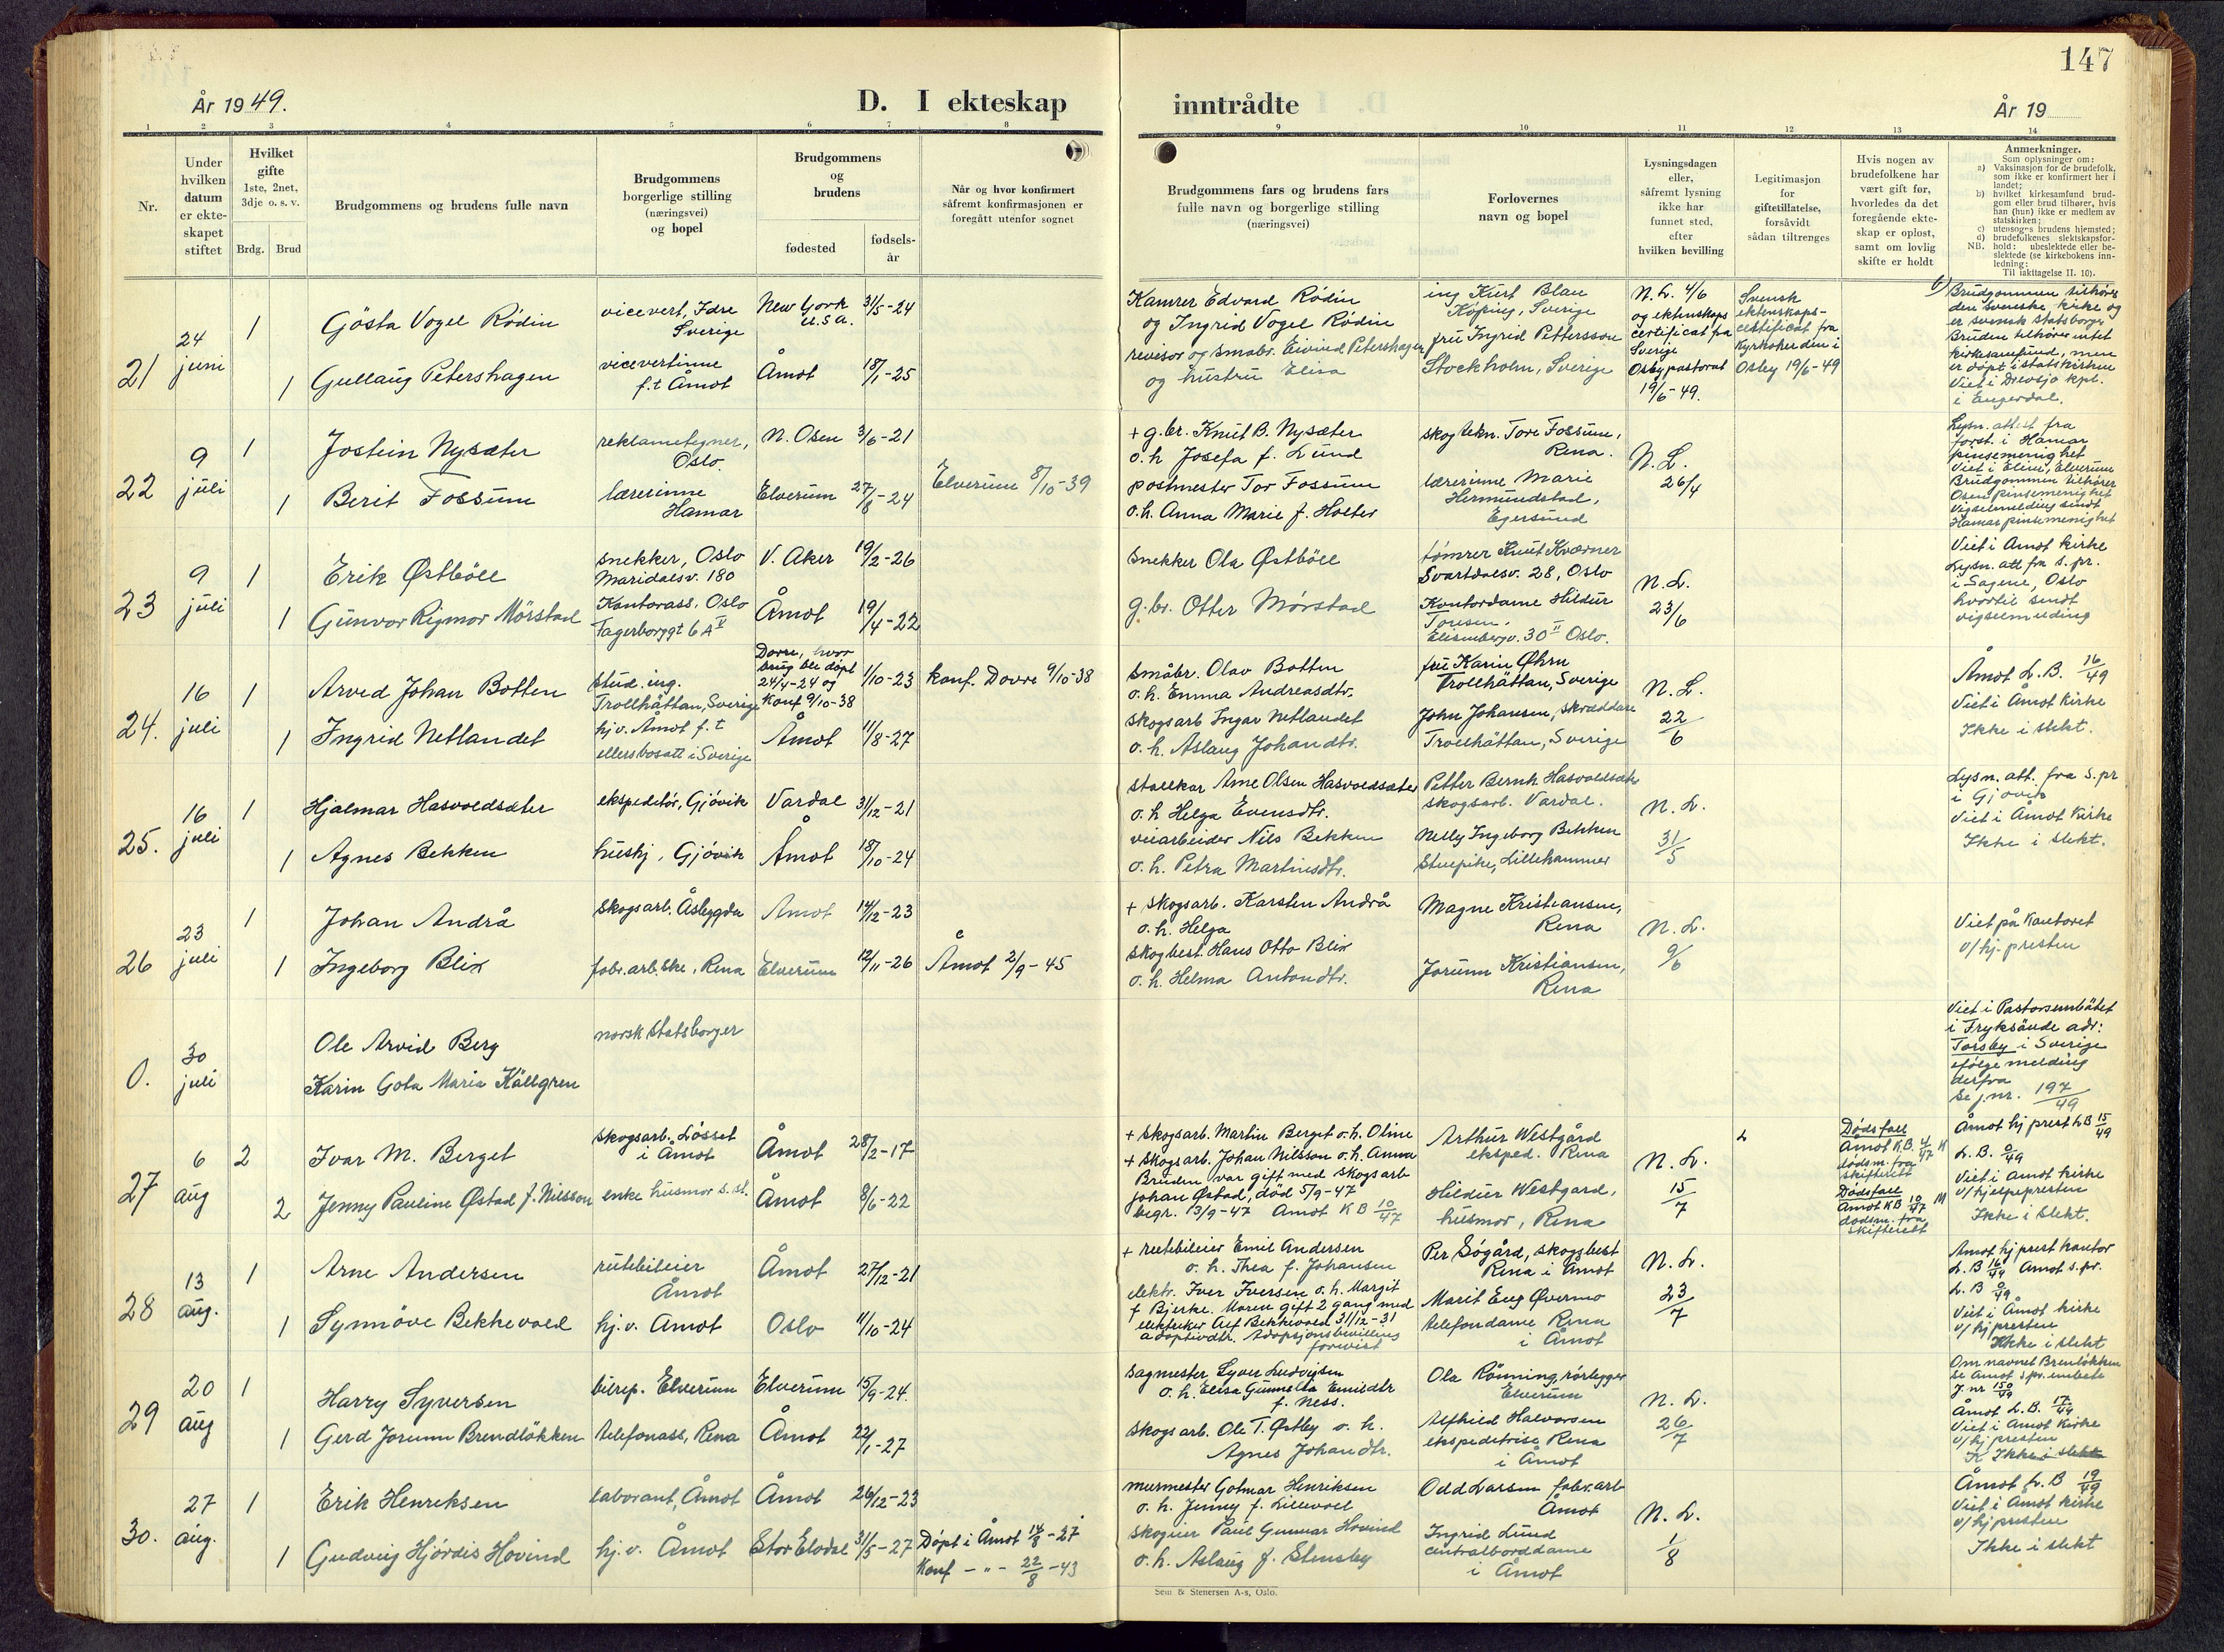 147
År 1949.
D. I ekteskap
inntrådte
År 19
1 2 3 4 5 6 7 8 9 10 11 12 13 14
Nr.
Under hvilken datum er ekte-skapet stiftet
Hvilket gifte
1ste, 2net, 3dje o. s. v.
Brdg. Brud
Brudgommens og brudens fulle navn
Brudgommens borgerlige stilling (næringsvei) og bopel
Brudgommens og brudens
fødested
fødsels-år
Når og hvor konfirmert såfremt konfirmasjonen er foregått utenfor sognet
Brudgommens fars og brudens fars fulle navn og borgerlige stilling (næringsvei)
Forlovernes navn og bopel
Lysningsdagen eller, såfremt lysning ikke har funnet sted, efter hvilken bevilling
Legitimasjon for giftetillatelse, forsåvidt sådan tiltrenges
Hvis nogen av brudefolkene har vært gift før, hvorledes da det foregående ekte-skap er opløst, samt om lovlig skifte er holdt
Anmerkninger.
Som oplysninger om:
a) Vaksinasjon for de brudefolk, som ikke er konfirmert her i landet;
b) hvilket kirkesamfund brud-gom eller brud tilhører, hvis han (hun) ikke er medlem av statskirken;
c) utensogns brudens hjemsted;
d) brudefolkenes slektskapsfor-hold: ubeslektede eller be-slektede (se kirkebokens inn-ledning:
NB. Til iakttagelse II. 10).
21
24 juni
1 Gösta Vogel Rödin
vicevert, Idre Sverige
New York U.S.A. 31/5-24
Kamrer Edvard Rödin
og Ingrid Vogel Rödin
ing Kurt Blau
Köping, Sverige
N.L. 4/6
og ektenskaps certificat fra Sverige
Osby pastorat
19/6-49.
Svensk ektenskaps-certificat fra Kyrkoherden i Osby 19/6-49
1 Gullaug Petershagen
vicevertinne f.t Åmot
Åmot 18/1-25
revisor og småbr. Eivind Petershagen
og hustru Elisa
fru Ingrid Pettersson
Stockholm, Sverige
Brudgommen tilhører
den svenske kirke og
er svensk statsborger
Bruden tilhører intet
kirkesamfund, men
er døpt i statskirken
Viet i Drevsjø kpl.
i Engerdal.
22
9 juli
1 Jostein Nysæter
reklametegner, Oslo.
N. Osen 3/6-21
+ g.br. Knut B. Nysæter
o.h Josefa f. Lund
skogtekn. Tore Fossum,
Rena.
N.L.
26/4
1 Berit Fossum
lærerinne Hamar
Elverum 27/8-24
Elverum 8/10-39
postmester Tor Fossum
o.h. Anna Marie f. Holter
lærerinne Marie
Hermundstad,
Egersund
Lysn. attest fra
forst. i Hamar
pinsemenighet
Viet i Elim, Elverum
Brudgommen tilhører
Osen pinsemenighet
Vigselmelding sendt
Hamar pinsemenighet
23
9 juli
1 Erik Østböll
snekker, Oslo
Maridalsv. 180
V. Aker 19/2-26
snekker Ola Østböll
tømrer Knut Kværner
Svartdalsv. 28, Oslo
N.L.
23/6
1 Gunvor Rigmor Mörstad
Kontorass. Oslo
Fagerborggt 6 A V
Åmot 19/4-22
g.br. Otter Mørstad
Kontordame Hildur
Elisenbergv. 30 II Oslo.
Viet i Åmot kirke
Lysn. att fra s.pr.
i Sagene, Oslo
hvortil sendt
vigselmelding
24.
16 juli
1 Arvid Johan Botten
stud. ing.
Trollhättan, Sverige
Dovre, hvor
brudg ble døpt
24/4-24 og
Konf 9/10-38
1/10-23
konf. Dovre 9/10-38
småbr. Olav Botten
o.h. Emma Andreasdtr.
fru Karin Øhrn
Trollhättan, Sverige
N.L.
22/6
1 Ingrid Netlandet
hj.v. Åmot f.t
ellers bosatt i Sverige
Åmot 11/8-27
skogsarb Ingar Netlandet
o.h. Aslaug Johandtr.
John Johansen, skræddare
Trollhättan, Sverige
Åmot L.B. 16/49
Viet i Åmot kirke
Ikke i slekt.
25.
16 juli
1 Hjalmar Hasvoldsæter
ekspeditør, Gjövik
Vardal 31/12-21
stallkar Arne Olsen Hasvoldsæter
o.h Helga Evensdtr.
Petter Bernh Hasvoldsæter
skogsarb. Vardal.
N.L.
31/5
1 Agnes Bekken
hushj, Gjövik
Åmot 18/10-24
veiarbeider Nils Bekken
o.h. Petra Martinsdtr.
Nelly Ingeborg Bekken
Stuepike, Lillehammer
Lysn. att. fra s.pr
i Gjøvik
Viet i Åmot kirke
Ikke i slekt.
26
23 juli
1 Johan Andrå
Skogsarb. Åsbygda
Åmot 14/12-23
+ skogsarb. Karsten Andrå
o.h. Helga
Magne Kristiansen,
Rena
N.L.
9/6
1 Ingeborg Blix
fabr.arb.ske, Rena
Elverum 12/11-26
Åmot 2/9-45
skogbest. Hans Otto Blix
o.h. Helma Antondtr.
Jorunn Kristiansen,
Rena
Viet på kontoret
v/hj. presten
0.
30 juli
Ole Arvid Berg
norsk statsborger
Karin Gota Maria Källgren
Viet i Pastorsembätet
i Fryksände adr:
Torsby i Sverige
ifølge melding
derfra
Se j.nr. 197/49
27
6 aug
2 Ivar M. Berget
skogsarb. Løsset i Åmot
Åmot 28/2-17
+ skogsarb. Martin Berget o.h. Oline
+ skogsarb. Johan Nilsson o.h. Anna
Bruden var gift med skogsarb
Johan Østad, død 5/9-47
begr. 13/9-47 Åmot KB 10/47
Arthur Westgård
eksped. Rena
N.L.
15/7
2 Jenny Pauline Østad f. Nilsson
enke husmor s.st.
Åmot 8/6-22
Hildur Westgard,
husmor, Rena
Dødsfall
Åmot KB 4/47 K
dødsm. fra
skifterett
Dødsfall
Åmot KB 10/47 M
dødsm. fra
skifterett
Åmot hj prest LB 15/49
L.B. 8/49
Viet i Åmot kirke
v/hjelpepresten
Ikke i slekt.
28
13 aug.
1 Arne Andersen
rutebileier Åmot
Åmot 27/12-21
+ rutebileier Emil Andersen
o.h. Thea f. Johansen
Per Søgård, skogsbest
Rena i Åmot
N.L.
23/7
1 Synnöve Bekkevold
hj.v. Åmot
Oslo 11/10-24
elektr. Iver Iversen o.h. Margit
f Bjerke. Moren gift 2 gang med
elektriker Alf Bekkevold 31/12-31
adoptivdtr. Adopsjonsbevilling
forevist
Marit Eng Øvermo
telefondame Rena
i Åmot
Åmot hj prest kontor
L.B 16/49 Åmot s.pr.
L.B 9/49
Viet i Åmot kirke
v/hj presten
Ikke i slekt
29
20 aug
1 Harry Syversen
bilrep. Elverum
Elverum 15/9-24.
sagmester Syver Ludvigsen
o.h. Elisa Gunnella Emildtr
f. Ness.
Ola Rönning, rörlegger
Elverum
N.L.
26/7
1 Gerd Jorunn Brendlökken
telefonass, Rena
Åmot 22/1-27
skogsarb. Ole T. Østby o.h.
Agnes Johandtr.
Alfhild Halvorsen
ekspeditrise Rena
i Åmot
Om navnet Brenløkken
se Åmot s.pr. embete
J.nr 150/49
Åmot L.B. 17/49
Viet i Åmot kirke
v/hj presten
Ikke i slekt
30.
27 aug.
1 Erik Henriksen
laborant, Åmot
Åmot 26/12-23
murmester Gotmar Henriksen
o.h. Jenny f. Lillevold
Odd Larsen fabr.arb
Åmot
N.L.
1/8
1 Gudveig Hjördis Hovind
hj.v. Åmot
Stor Elvdal 31/5-27
Döpt i Åmot 14/8-27
Konf -"- 22/8-43
skogeier Paul Gunnar Hovind
o.h. Aslaug f. Stensby
Ingrid Lund
centralborddame
i Åmot
Åmot L.B 19/49
Viet i Åmot kirke
v/hj presten
Ikke i slekt
Sem & Stenersen A-s, Oslo.